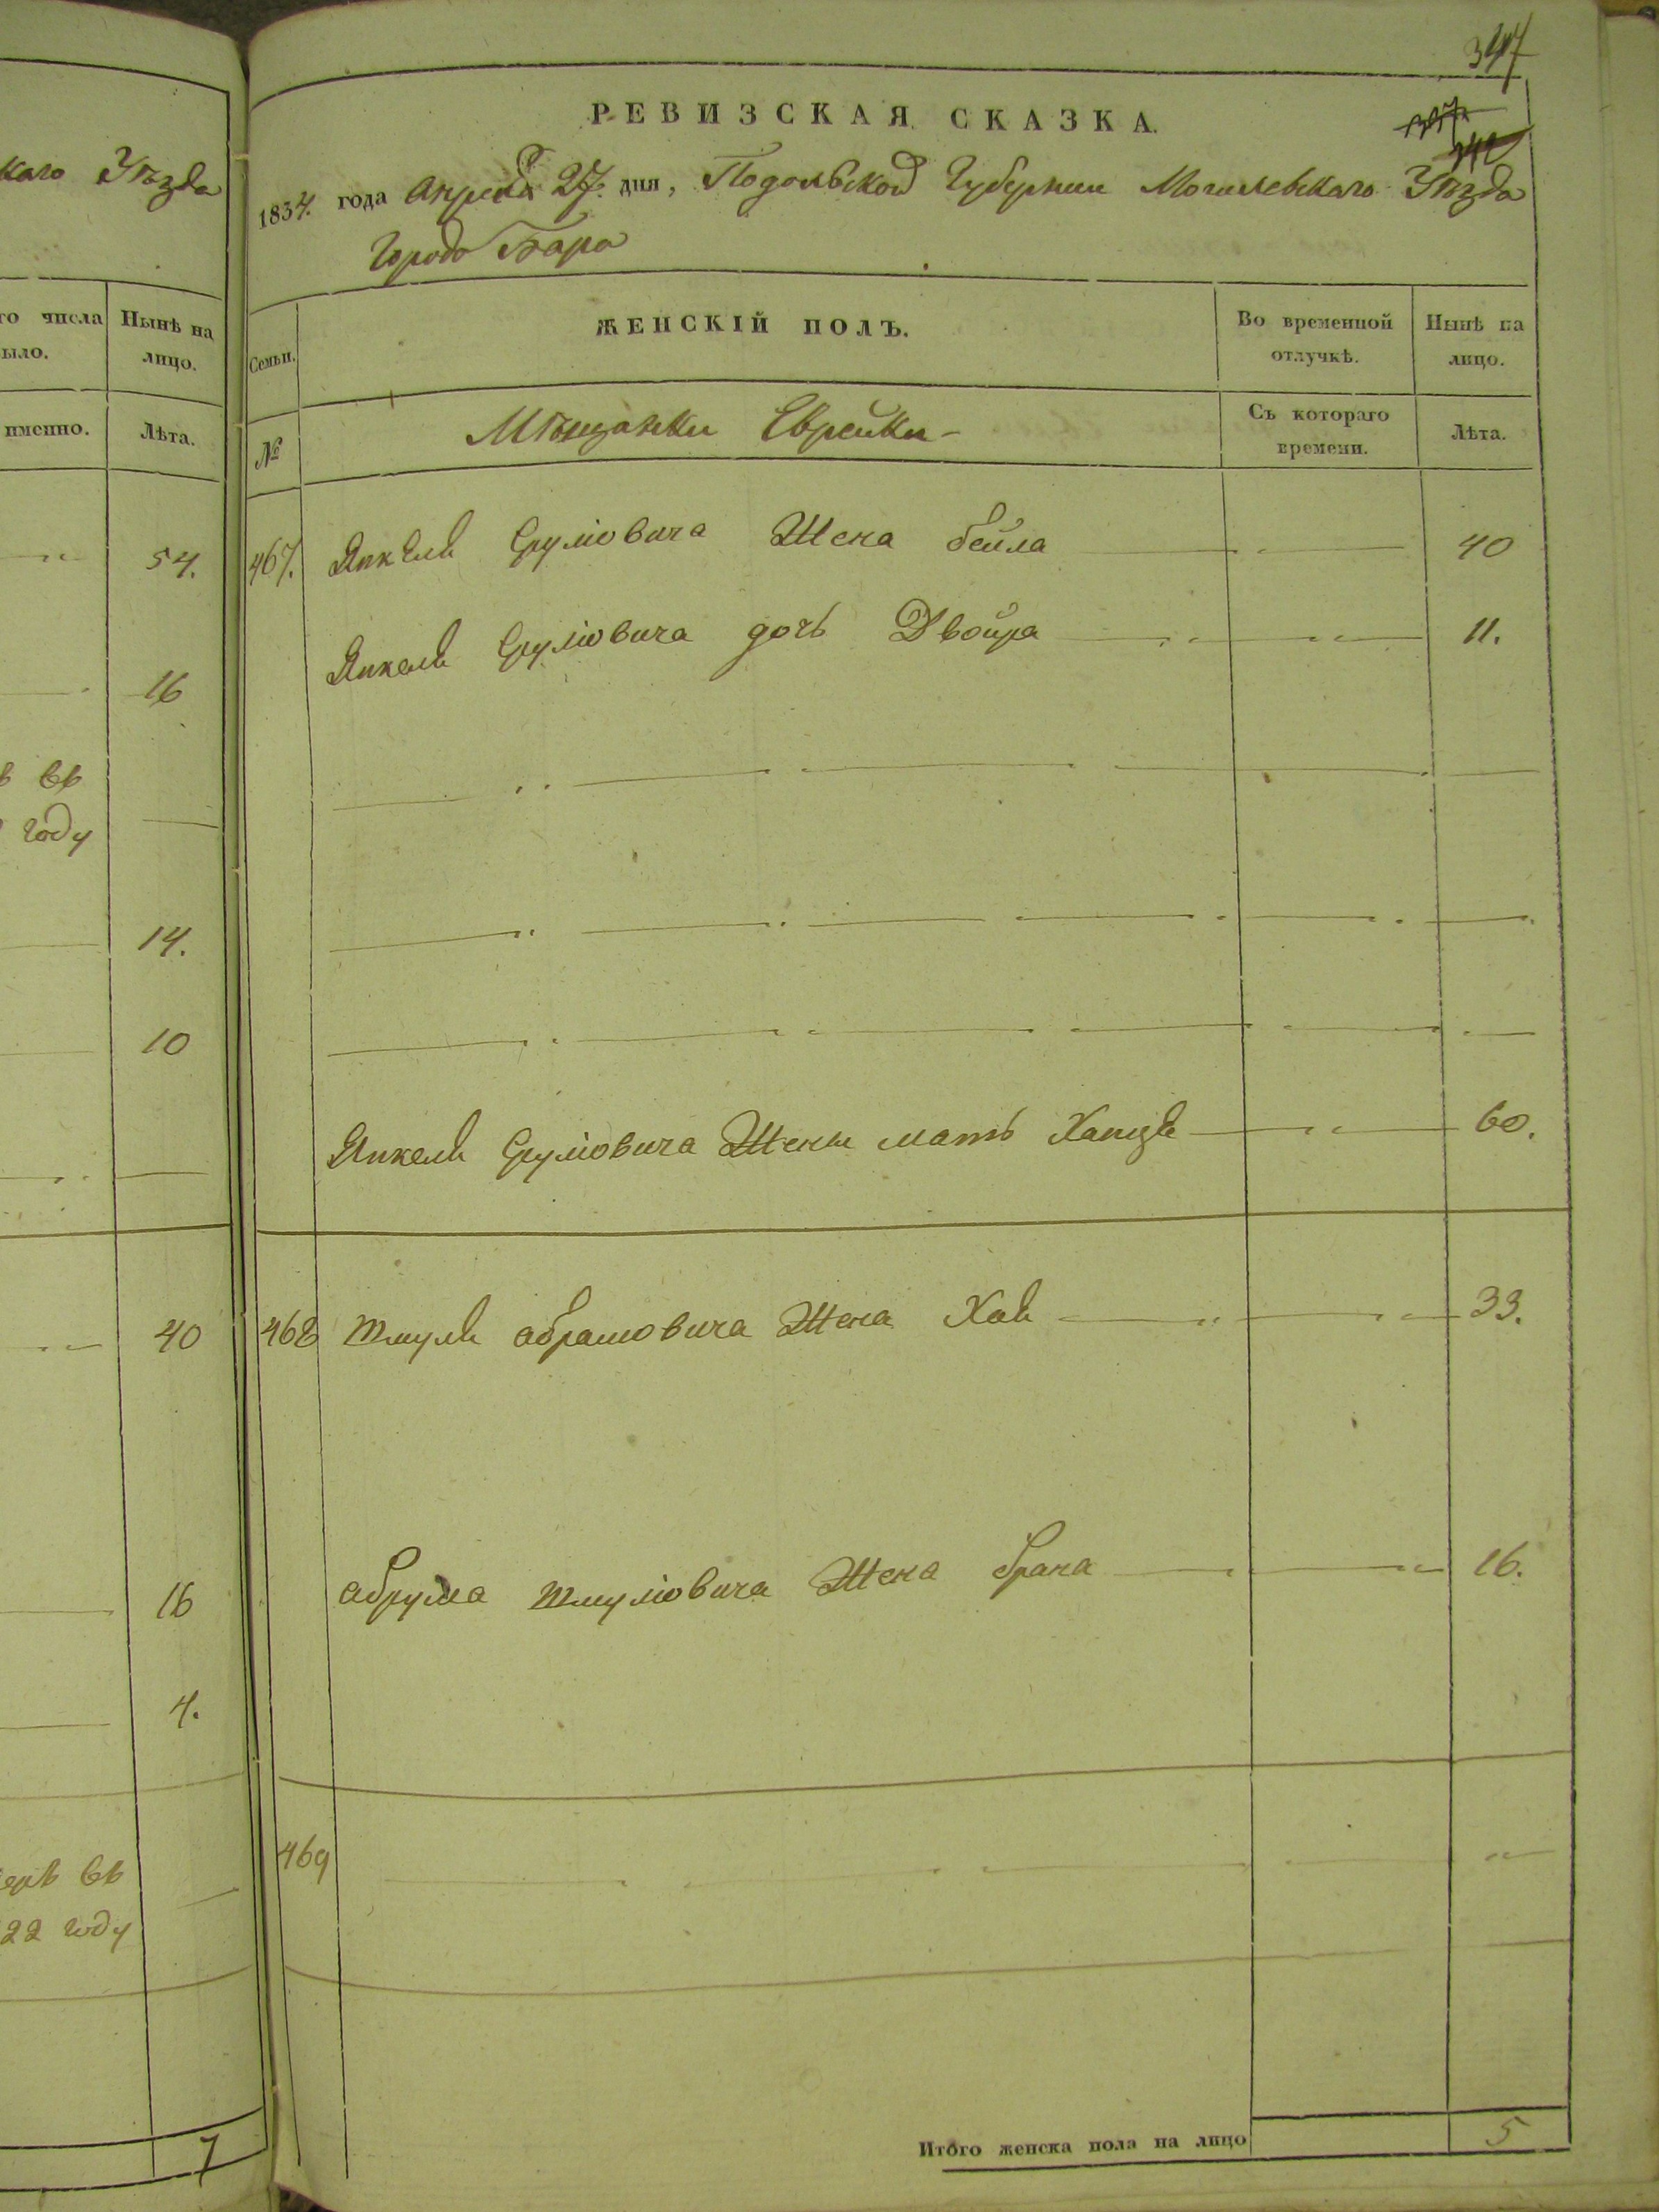 каго Уѣзда
го числа
было.
Нынѣ на
лицо.
именно.
Лѣта.
54.
16
въ
году
14.
10
40
16
4.
въ
22 году
7
347
РЕВИЗСКАЯ СКАЗКА.
1834. года Апреля 27. дня, Подольской Губернии Могилевскаго Уѣзда
Города Бара
Семьи.
ЖЕНСКІЙ ПОЛЪ.
Во временной
отлучкѣ.
Нынѣ на
лицо.
№
Мѣщанки Еврейки
Съ котораго
времени.
Лѣта.
467. Янкеля Сруліовича Жена бейла 40
Янкеля Сруліовича дочь Двойра 11.
Янкеля Сруліовича Жены мать 60.
468 Шмуля абрамовича Жена Хая 33.
абрума Шмуліовича Жена брача 16.
469
Итого женска пола на лицо 5